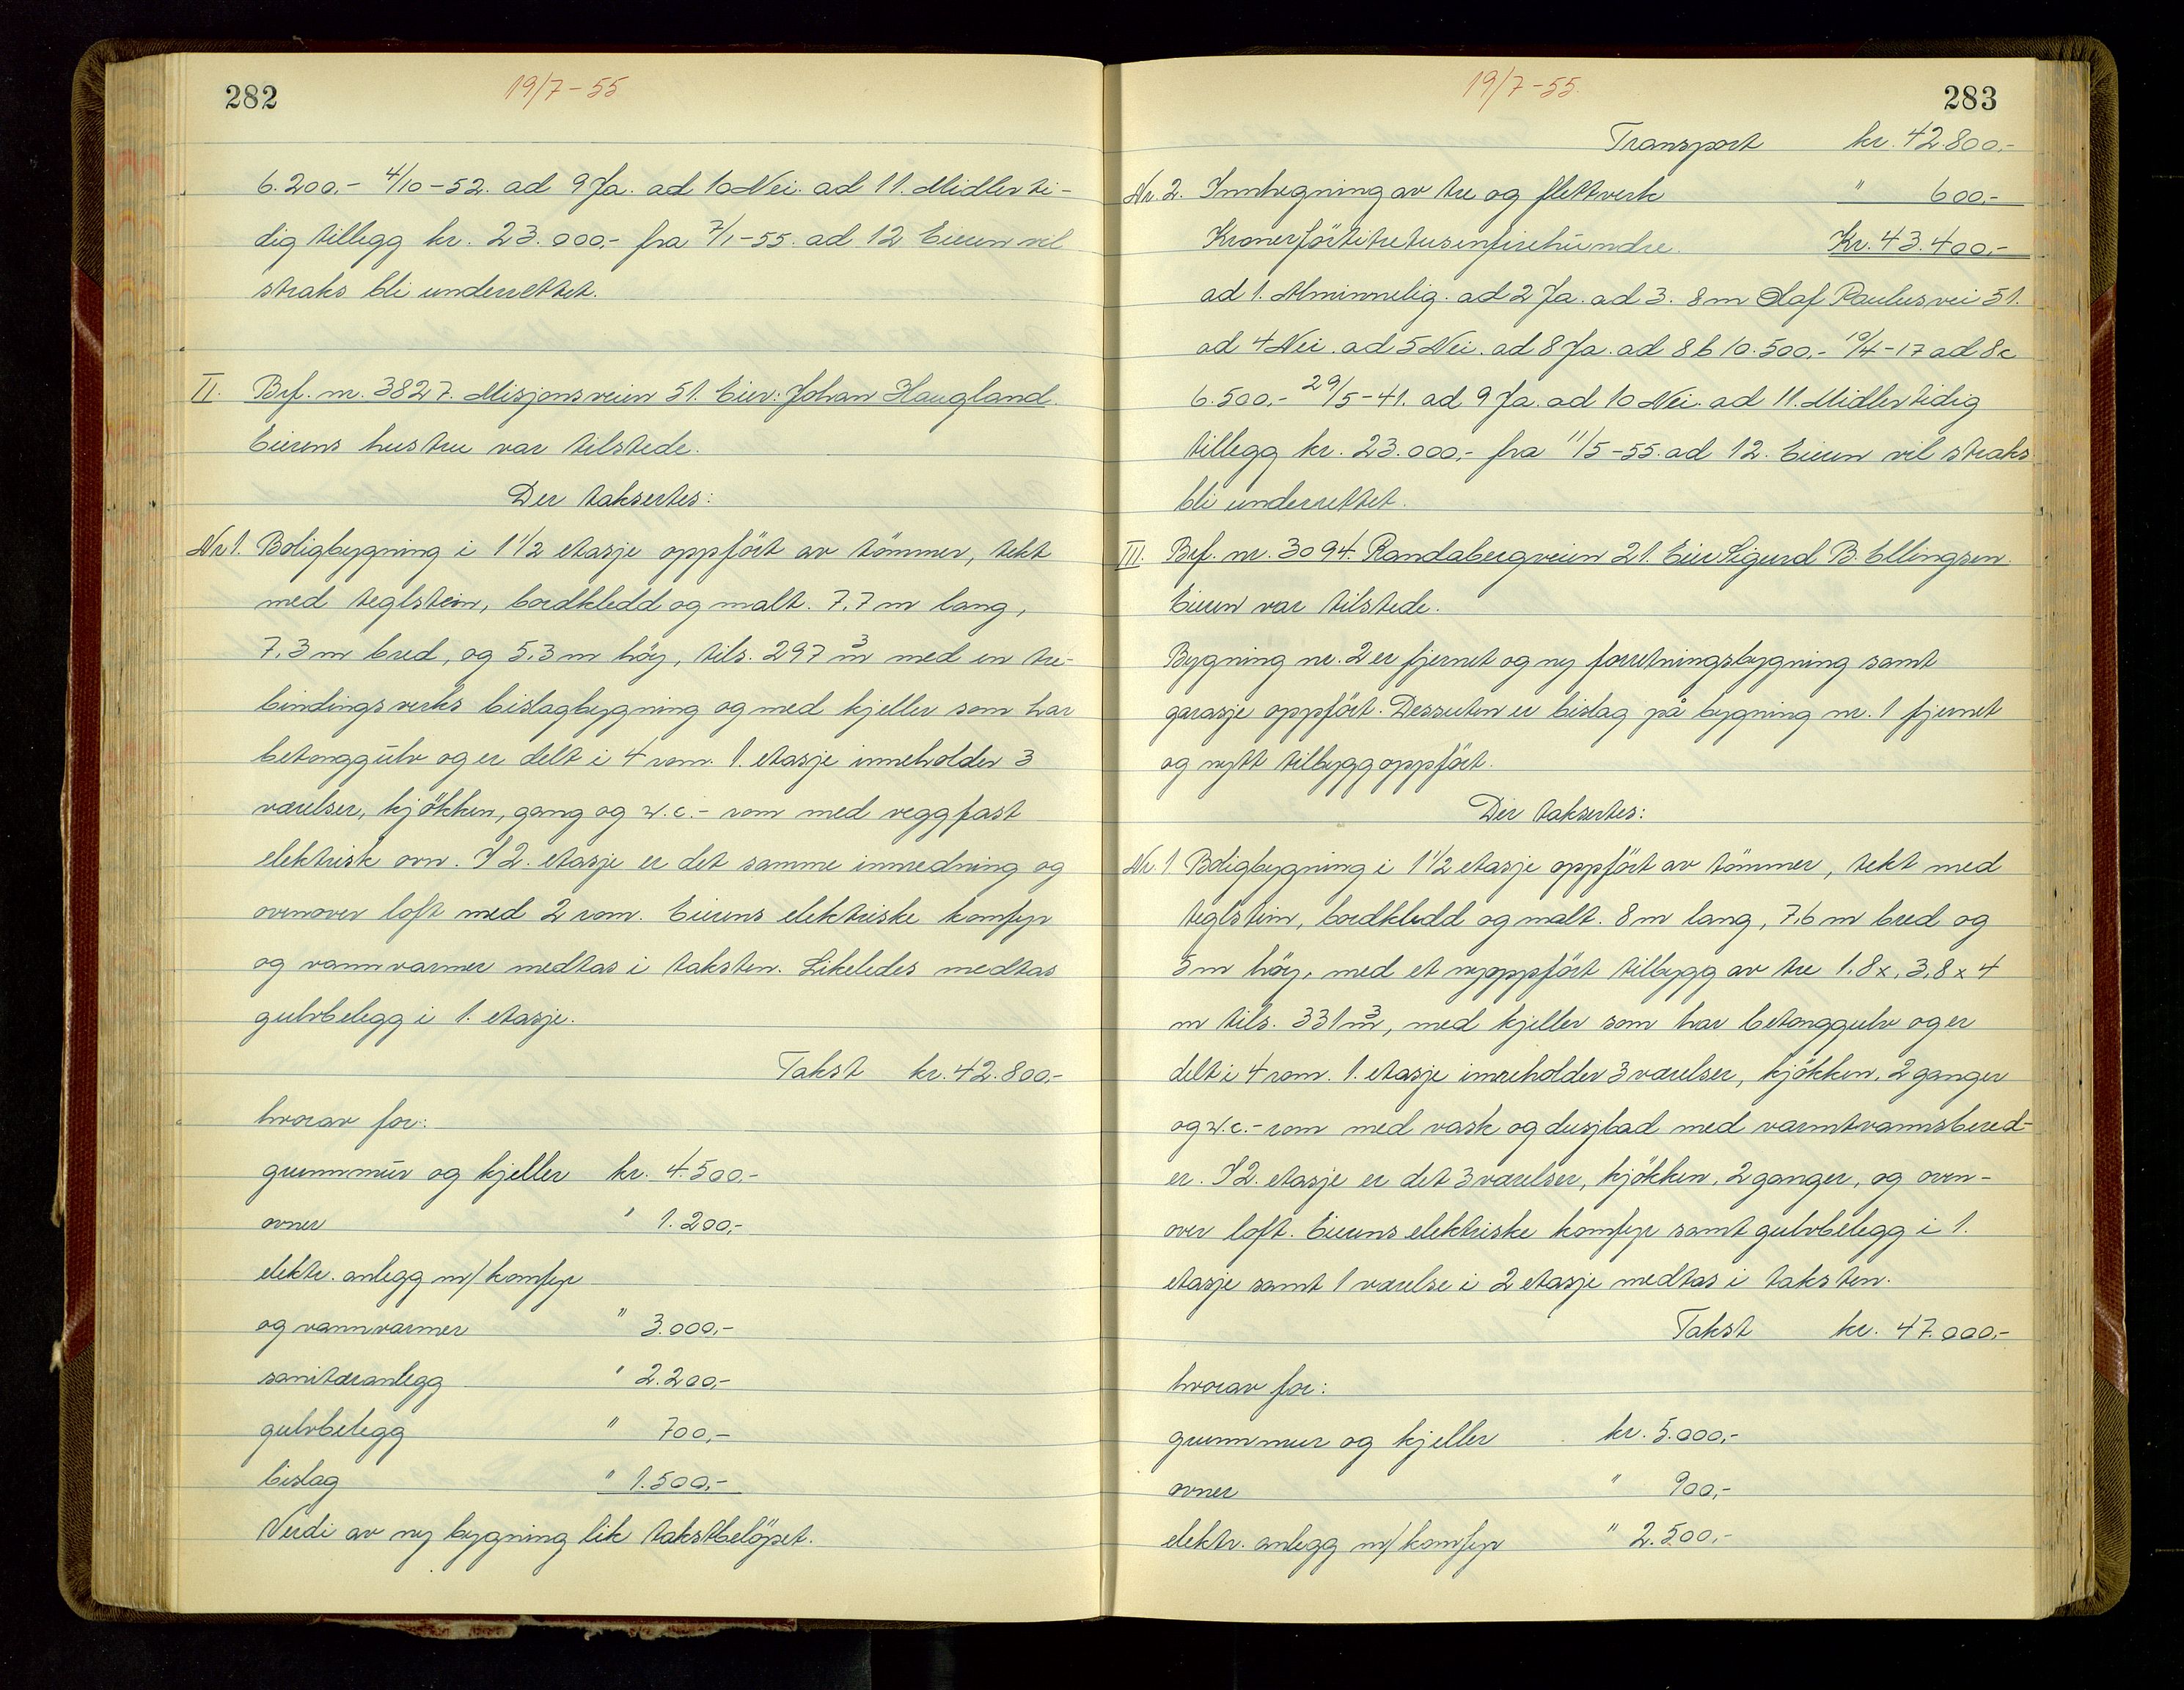 282
19/7-55
6.200,- 4/10-52. ad 9 Ja. ad 10 Nei. ad 11. Midlerti-
dig tillegg kr. 23.000,- fra 7/1-55. ad 12 Eieren vil
straks bli underrettet.
II. Brf. nr. 3827. Misjonsveien 51. Eier: Johan Haugland.
Eierens hustru var tilstede.
Der taksertes:
Nr 1. Boligbygning i 1 1/2 etasje oppført av tömmer, tekt
med teglstein, bordkledd og malt. 7,7 m lang,
7,3 m bred, og 5,3 m höy, tils. 297 m³ med en tre-
bindingsverks bislagbygning og med kjeller som har
betonggulv og er delt i 4 rom. 1. etasje inneholder 3
værelser, kjökken, gang og w.c.- rom med veggfast
elektrisk ovn. I 2. etasje er det samme innredning og
ovenover loft med 2 rom. Eierens elektriske komfyr
og vannvarmer medtas i taksten. Likeledes medtas
gulvbelegg i 1. etasje.
Takst kr. 42.800,-
hvorav for:
grunnmur og kjeller kr. 4.500,-
ovner " 1.200,-
elektr. anlegg m/ komfyr
og vannvarmer " 3.000,-
sanitæranlegg " 2.200,-
gulvbelegg " 700,-
bislag " 1.500,-
Verdi av ny bygning lik takstbelöpet.
283
19/7-55.
Transport kr. 42.800,-
Nr. 2. Innhegning av tre og flettverk " 600,-
Kronerförtitretusenfirehundre. Kr. 43.400,-
ad 1. Alminnelig. ad 2 Ja. ad 3. 8 m Olaf Paulusvei 51.
ad 4 Nei. ad 5 Nei. ad 8 Ja. ad 8 b 10.500,- 19/4-17 ad 8c
6.500,- 29/5-41. ad 9 Ja. ad 10 Nei. ad 11. Midlertidig
tillegg kr. 23.000,- fra 11/5-55. ad 12. Eieren vil straks
bli underrettet.
III. Brf. nr. 3094. Randabergveien 21. Eier Sigurd B. Ellingsen.
Eieren var tilstede.
Bygning nr. 2 er fjernet og ny forretningsbygning samt
garasje oppfört. Dessuten er bislag på bygning nr. 1 fjernet
og nytt tilbygg oppfört.
Der taksertes:
Nr. 1 Boligbygning i 1 1/2 etasje oppfört av tömmer, tekt med
teglstein, bordkledd og malt. 8 m lang, 7,6 m bred og
5 m höy, med et nyoppfört tilbygg av tre 1,8 x 3,8 x 4
m tils. 331 m³, med kjeller som har betonggulv og er
delt i 4 rom. 1. etasje inneholder 3 værelser, kjökken, 2 ganger
og w.c.- rom med vask og dusjbad med varmtvannsbered-
er. I 2. etasje er det 3 værelser, kjökken, 2 ganger, og oven-
over loft. Eierens elektriske komfyr samt gulvbelegg i 1.
etasje samt 1 værelse i 2 etasje medtas i taksten.
Takst kr. 47.000,-
hvorav for:
grunnmur og kjeller kr. 5.000,-
ovner " 900,-
elektr. anlegg m/ komfyr " 2.500,-